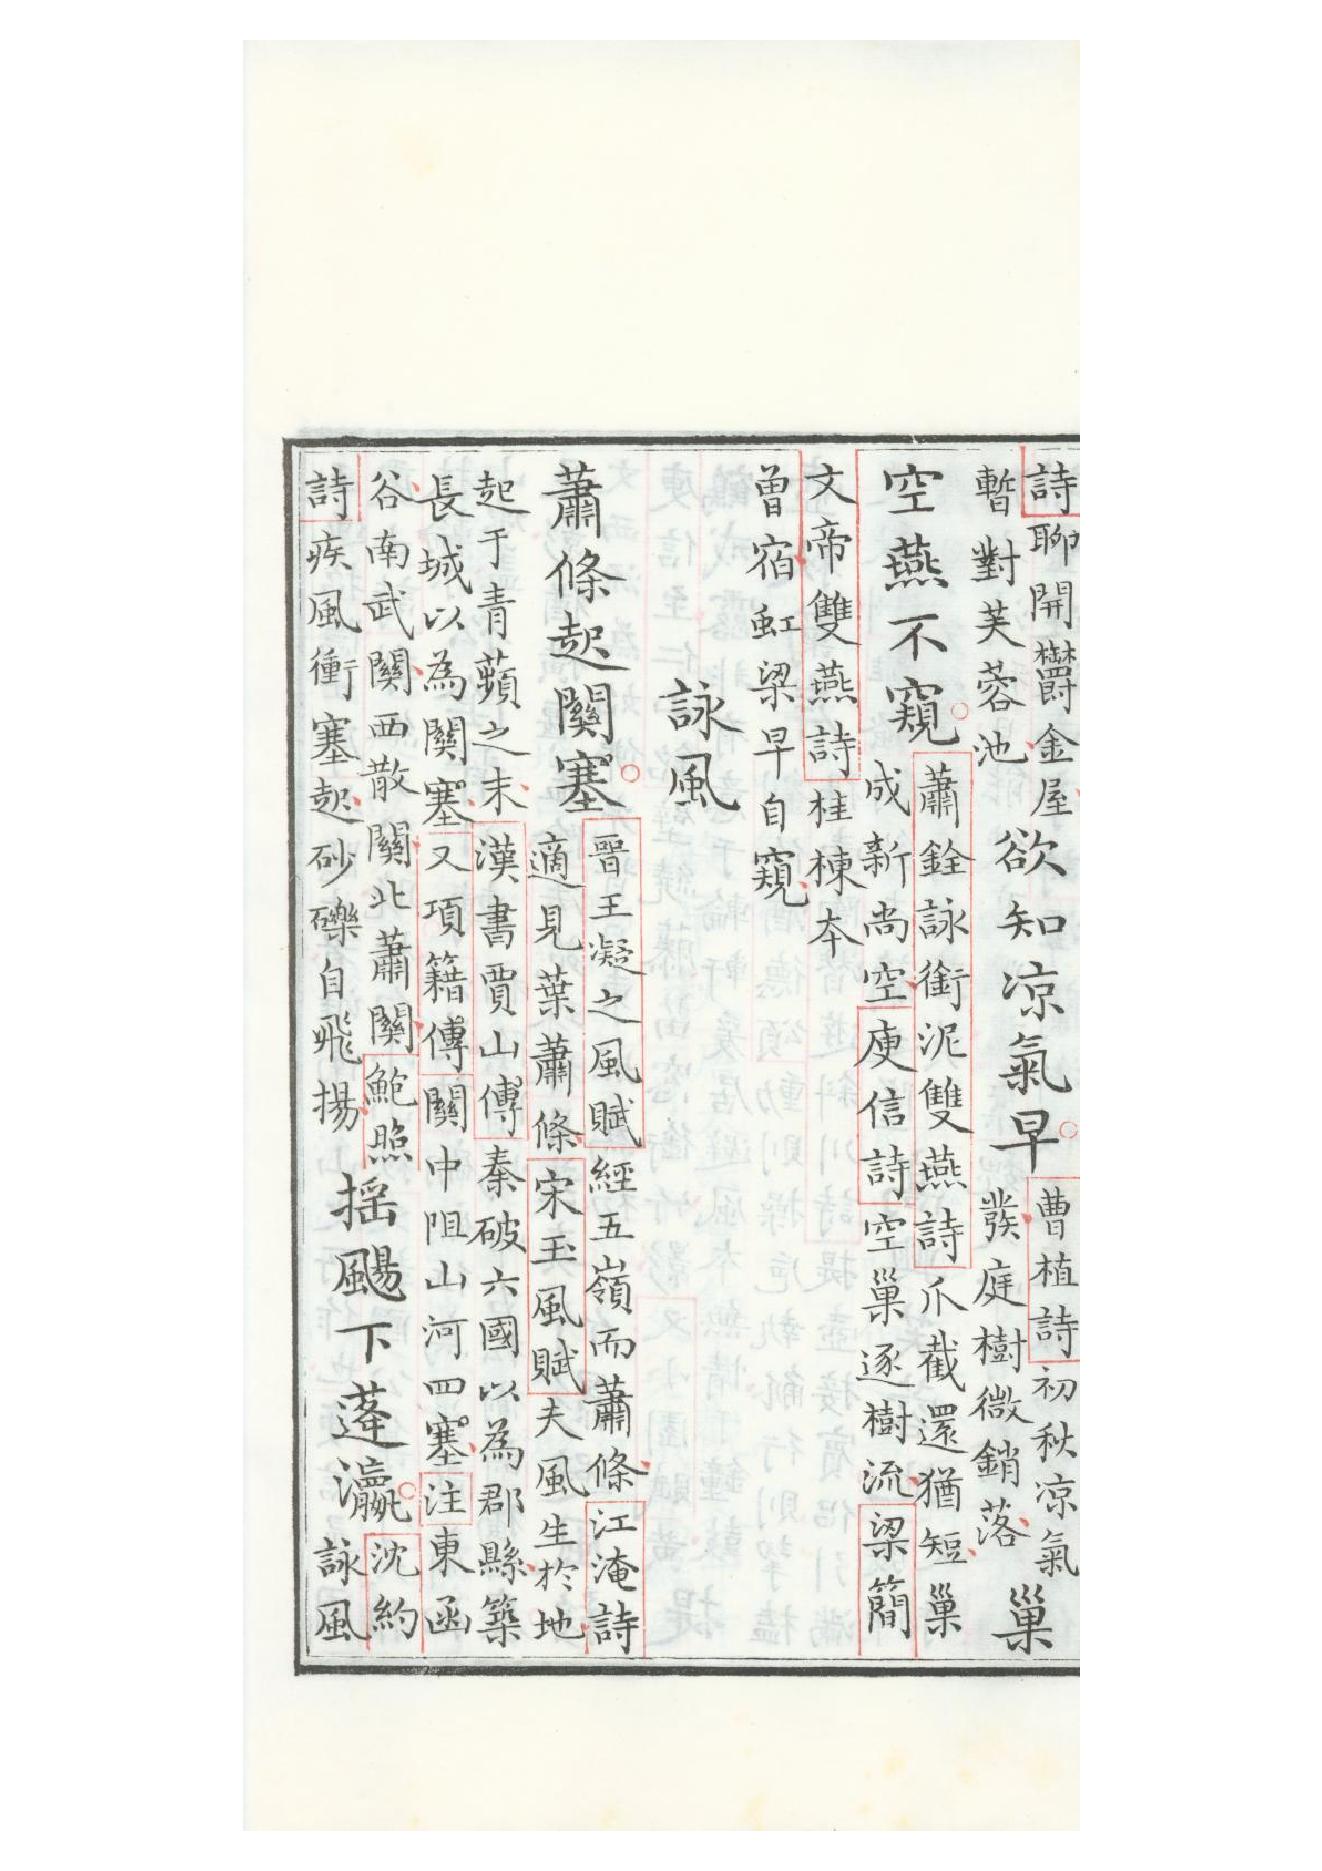 詩聊開鬱金屋
暫對芙蓉池
欲知凉氣早
曹植詩初秋凉氣
發庭樹微銷落
巢
空燕不窺
蕭銓詠銜泥雙燕詩爪截還猶短巢
成新尚空庾信詩空巢逐樹流梁簡
文帝雙燕詩桂棟本
曾宿虹梁早自窺
詠風
蕭條起關塞
晉王凝之風賦經五嶺而蕭條江淹詩
適見葉蕭條宋玉風賦夫風生於地
起于青蘋之末漢書賈山傳秦破六國以為郡縣築
長城以為關塞又項籍傳關中阻山河四塞注東函
谷南武關西散關北蕭關鮑照
詩疾風衝塞起砂礫自飛揚
揺颺下蓬瀛
沈約
詠風